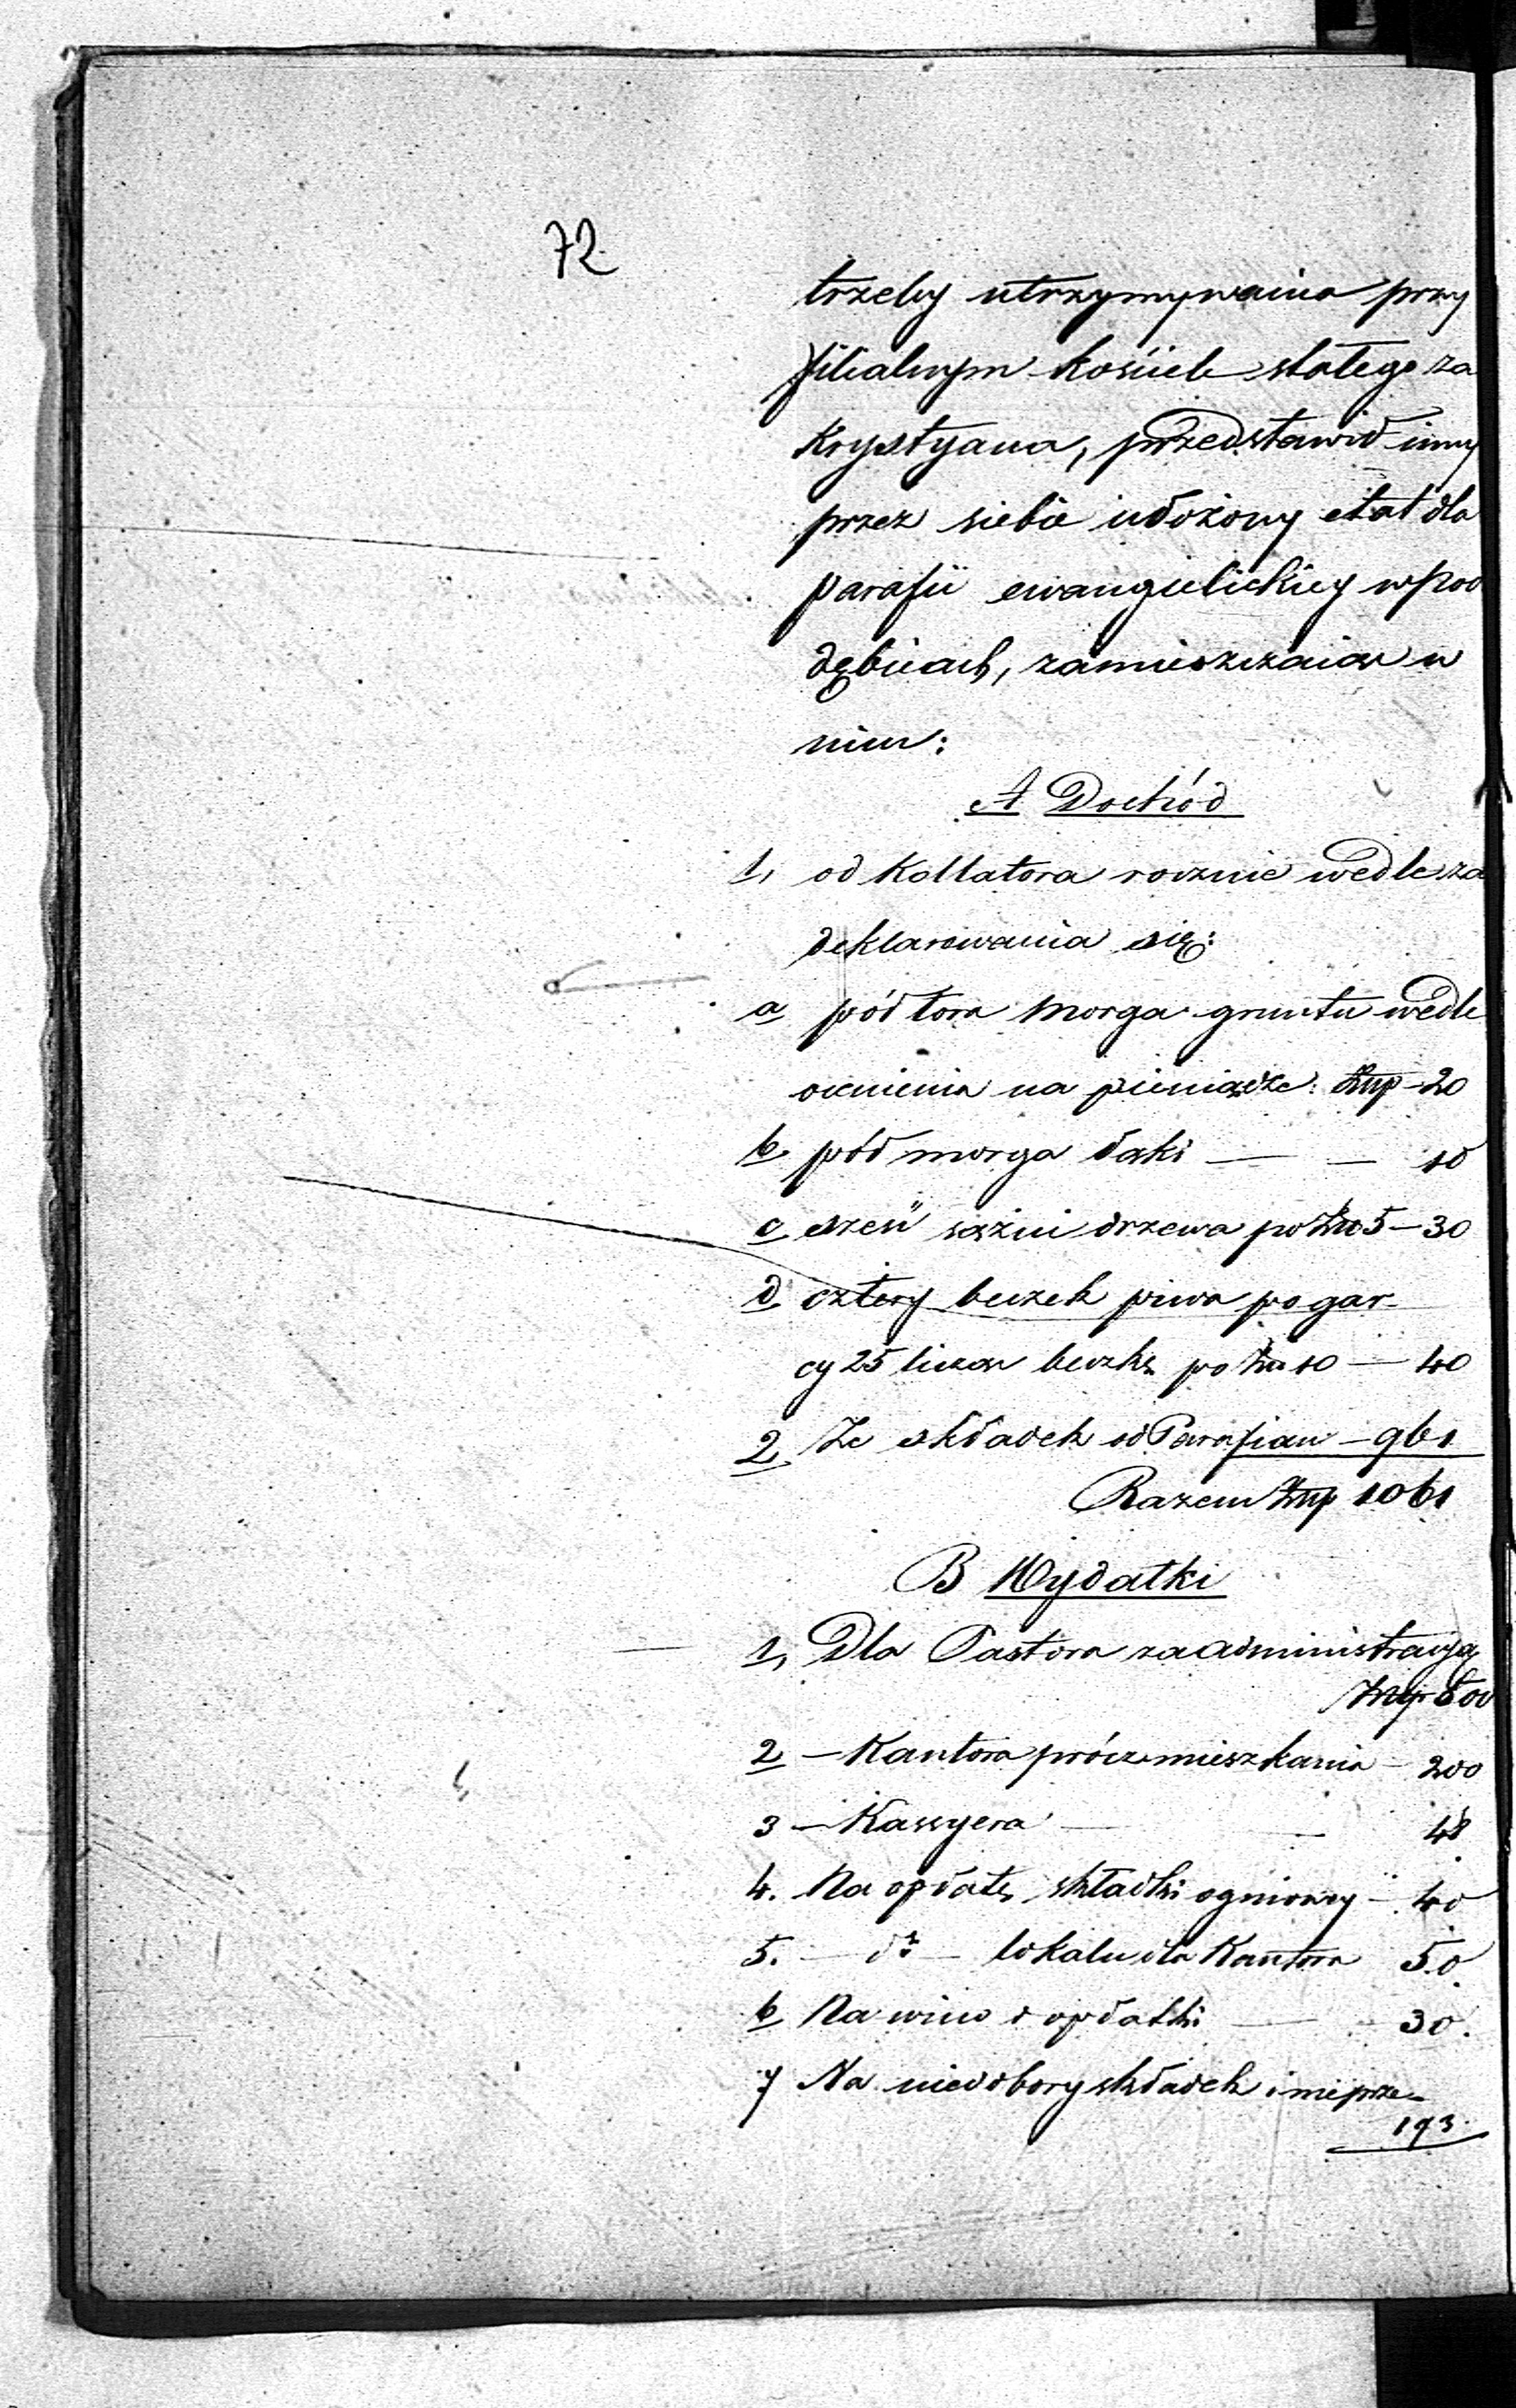 72
trzeby utrzymywania przy
filialnym kościele stałego za
krystyana, przedstawił inny
przez siebie ułożony etat dla
parafii ewangielickiey w Pod
dębicach, zamieszczaiąc w
nim:
A Dochód
1, od Kollatora rocznie wedle za
deklarowania się:
a półtora morga gruntu wedle
ocenienia na pieniądze: Złłp - 20
b, pół morga łąki — — 10
c, sześć sążni drzewa po Złł 5 — 30
d, cztery beczek piwa po gar-
cy 25 licząc beczkę po Złł 10 — 40
2, Ze składek od Parafian — 961
Razem Złłp 1061
B Wydatki
1, Dla Pastora za administracyą
Złłp 500
2 — Kantora prócz mieszkania — 200
3 — Kassyera — — 48
4. Na opłatę składki ogniowey — 40
5. — dto — lokalu dla Kantora 50.
6 Na wino i opłatki — 30.
7 Na niedobory składek i nieprze-
193.